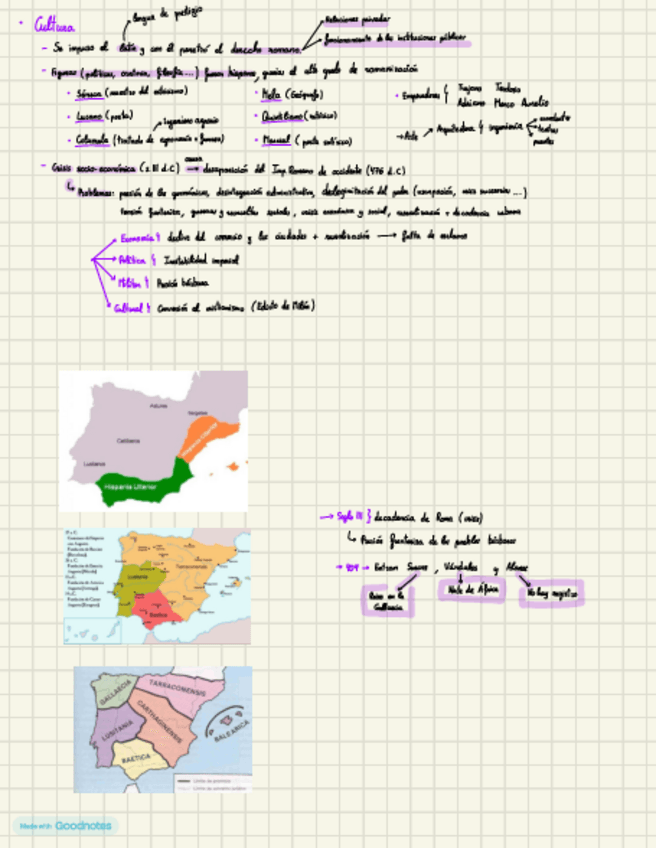 • Cultura
lengua de prestigio
- Se impuso el latín y con él penetró el derecho romano.
Relaciones privadas
funcionamiento de las instituciones públicas
- Figuras (políticas, oratoria, filosofía...) fueron hispanas, gracias al alto grado de romanización
• Séneca (maestro del estoicismo)
• Mela (Geógrafo)
• Emperadores { Trajano Teodosio
Adriano Marco Aurelio
• Lucano (poeta)
• Quintiliano (retórico)
• Columela
Ingeniero agrario
• Marcial (poeta satírico)
→ Arte → Arquitectura e ingeniería
acueductos
teatros
puentes
- Crisis socio-económica (s. III d.C) causa → desaparición del Imp. Romano de occidente (476 d.C)
↳ Problemas: presión de los germánicos, desintegración administrativa, deslegitimación del poder
tensión fronteriza, guerras y revueltas sociales, crisis económica y social, ruralización + decadencia urbana
Economía } declive del comercio y las ciudades + ruralización → falta de esclavos
Política } Inestabilidad imperial
Militar } Presión bárbara
Cultural } Conversión al cristianismo (Edicto de Milán)
Astures
Vascones
Celtíberos
Lusitanos
Hispania Citerior
Hispania Ulterior
→ Siglo III } decadencia de Roma (crisis)
↳ Presión fronteriza de los pueblos bárbaros
→ 409 → Entran Suevos, Vándalos y Alanos
Reino en la Gallaecia
Norte de África
No hay registro
Lusitania
Tarraconensis
Baetica
GALLAECIA
TARRACONENSIS
CARTHAGINENSIS
LUSITANIA
BALEARICA
BAETICA
Límite de provincia
Made with Goodnotes